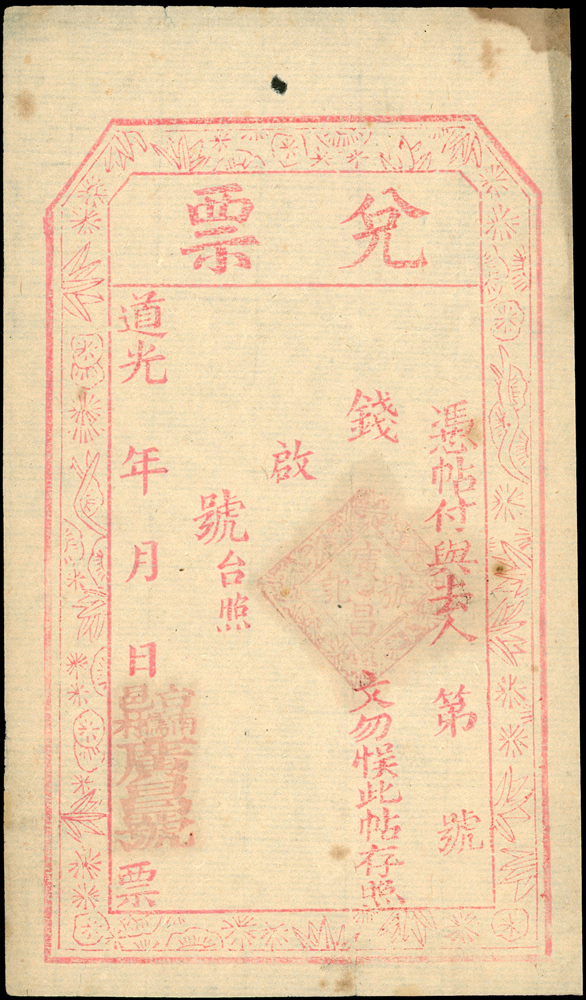 兌票
憑帖付與去人 第 號
錢 文勿悞此帖存照
啟
號台照
道光 年 月 日
廣昌號
票